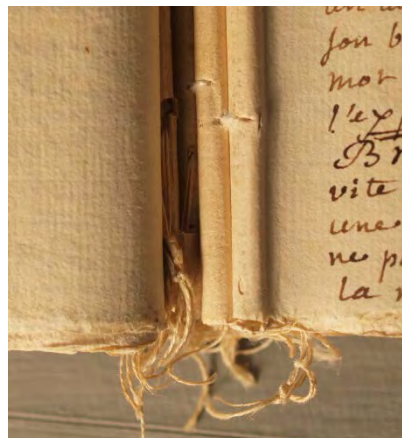 son b
mot
l'exp
Br
vite
une
ne p
la